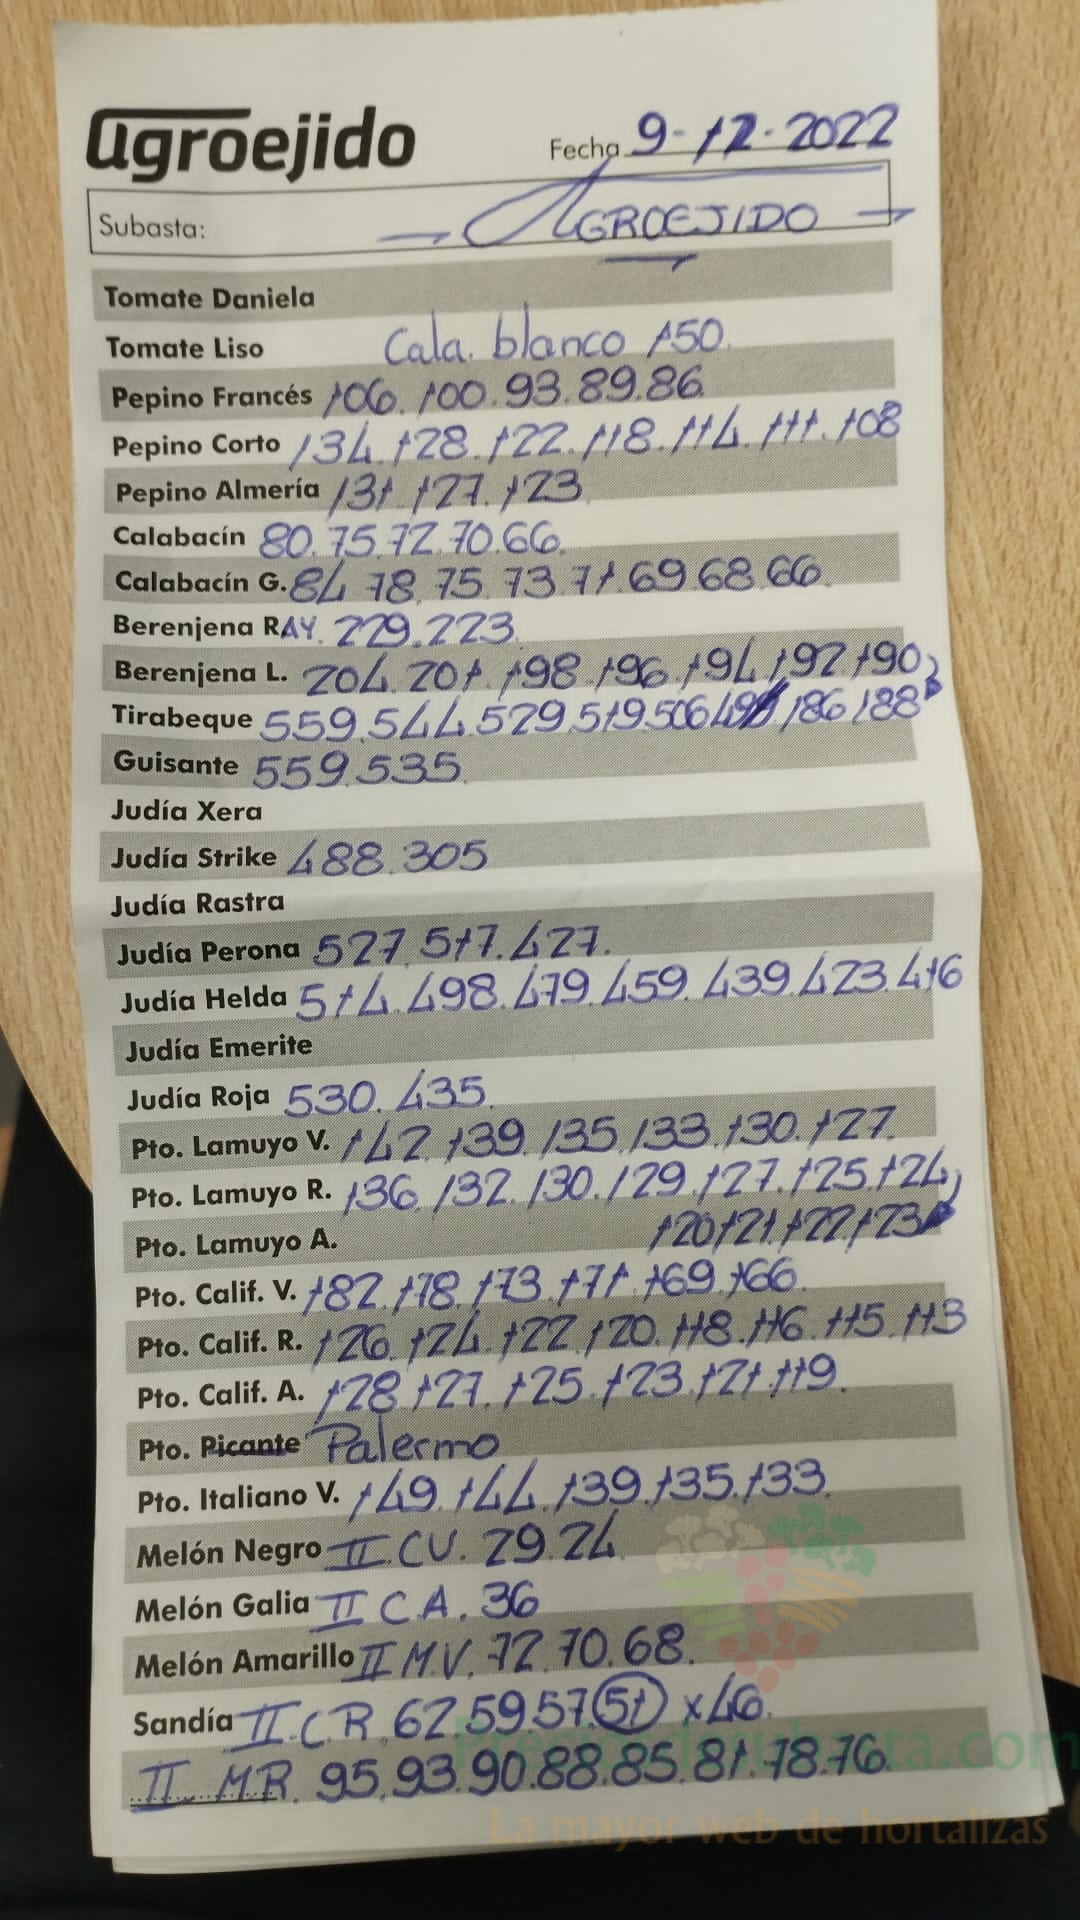 agroejido
Fecha 9-12-2022
Subasta: AGROEJIDO
Tomate Daniela
Tomate Liso Cala. blanco 150.
Pepino Francés 106. 100. 93. 89. 86.
Pepino Corto 134. 128. 122. 118. 114. 111. 108
Pepino Almería 131. 127. 123
Calabacín 80. 75. 72. 70. 66.
Calabacín G. 84. 78. 75. 73. 71. 69. 68. 66.
Berenjena RAY. 229. 223.
Berenjena L. 204. 201. 198. 196. 194. 192. 190
Tirabeque 559. 544. 529. 519. 506 186 188
Guisante 559. 535.
Judía Xera
Judía Strike 488. 305
Judía Rastra
Judía Perona 527. 517. 427.
Judía Helda 514. 498. 479. 459. 439. 423. 416
Judía Emerite
Judía Roja 530. 435.
Pto. Lamuyo V. 142. 139. 135. 133. 130. 127.
Pto. Lamuyo R. 136. 132. 130. 129. 127. 125. 124
Pto. Lamuyo A. 120 121. 122 123
Pto. Calif. V. 182. 178. 173. 171. 169. 166.
Pto. Calif. R. 126. 124. 122. 120. 118. 116. 115. 113
Pto. Calif. A. 128. 127. 125. 123. 121. 119.
Pto. Picante Palermo
Pto. Italiano V. 149. 144. 139. 135. 133.
Melón Negro II. CU. 29. 24
Melón Galia II C A. 36
Melón Amarillo II M.V. 72. 70. 68.
Sandía II. C.R. 62. 59. 57. 51 x46.
II M.R. 95. 93. 90. 88. 85. 81. 78. 76.
Preciosdesubasta.com
La mayor web de hortalizas